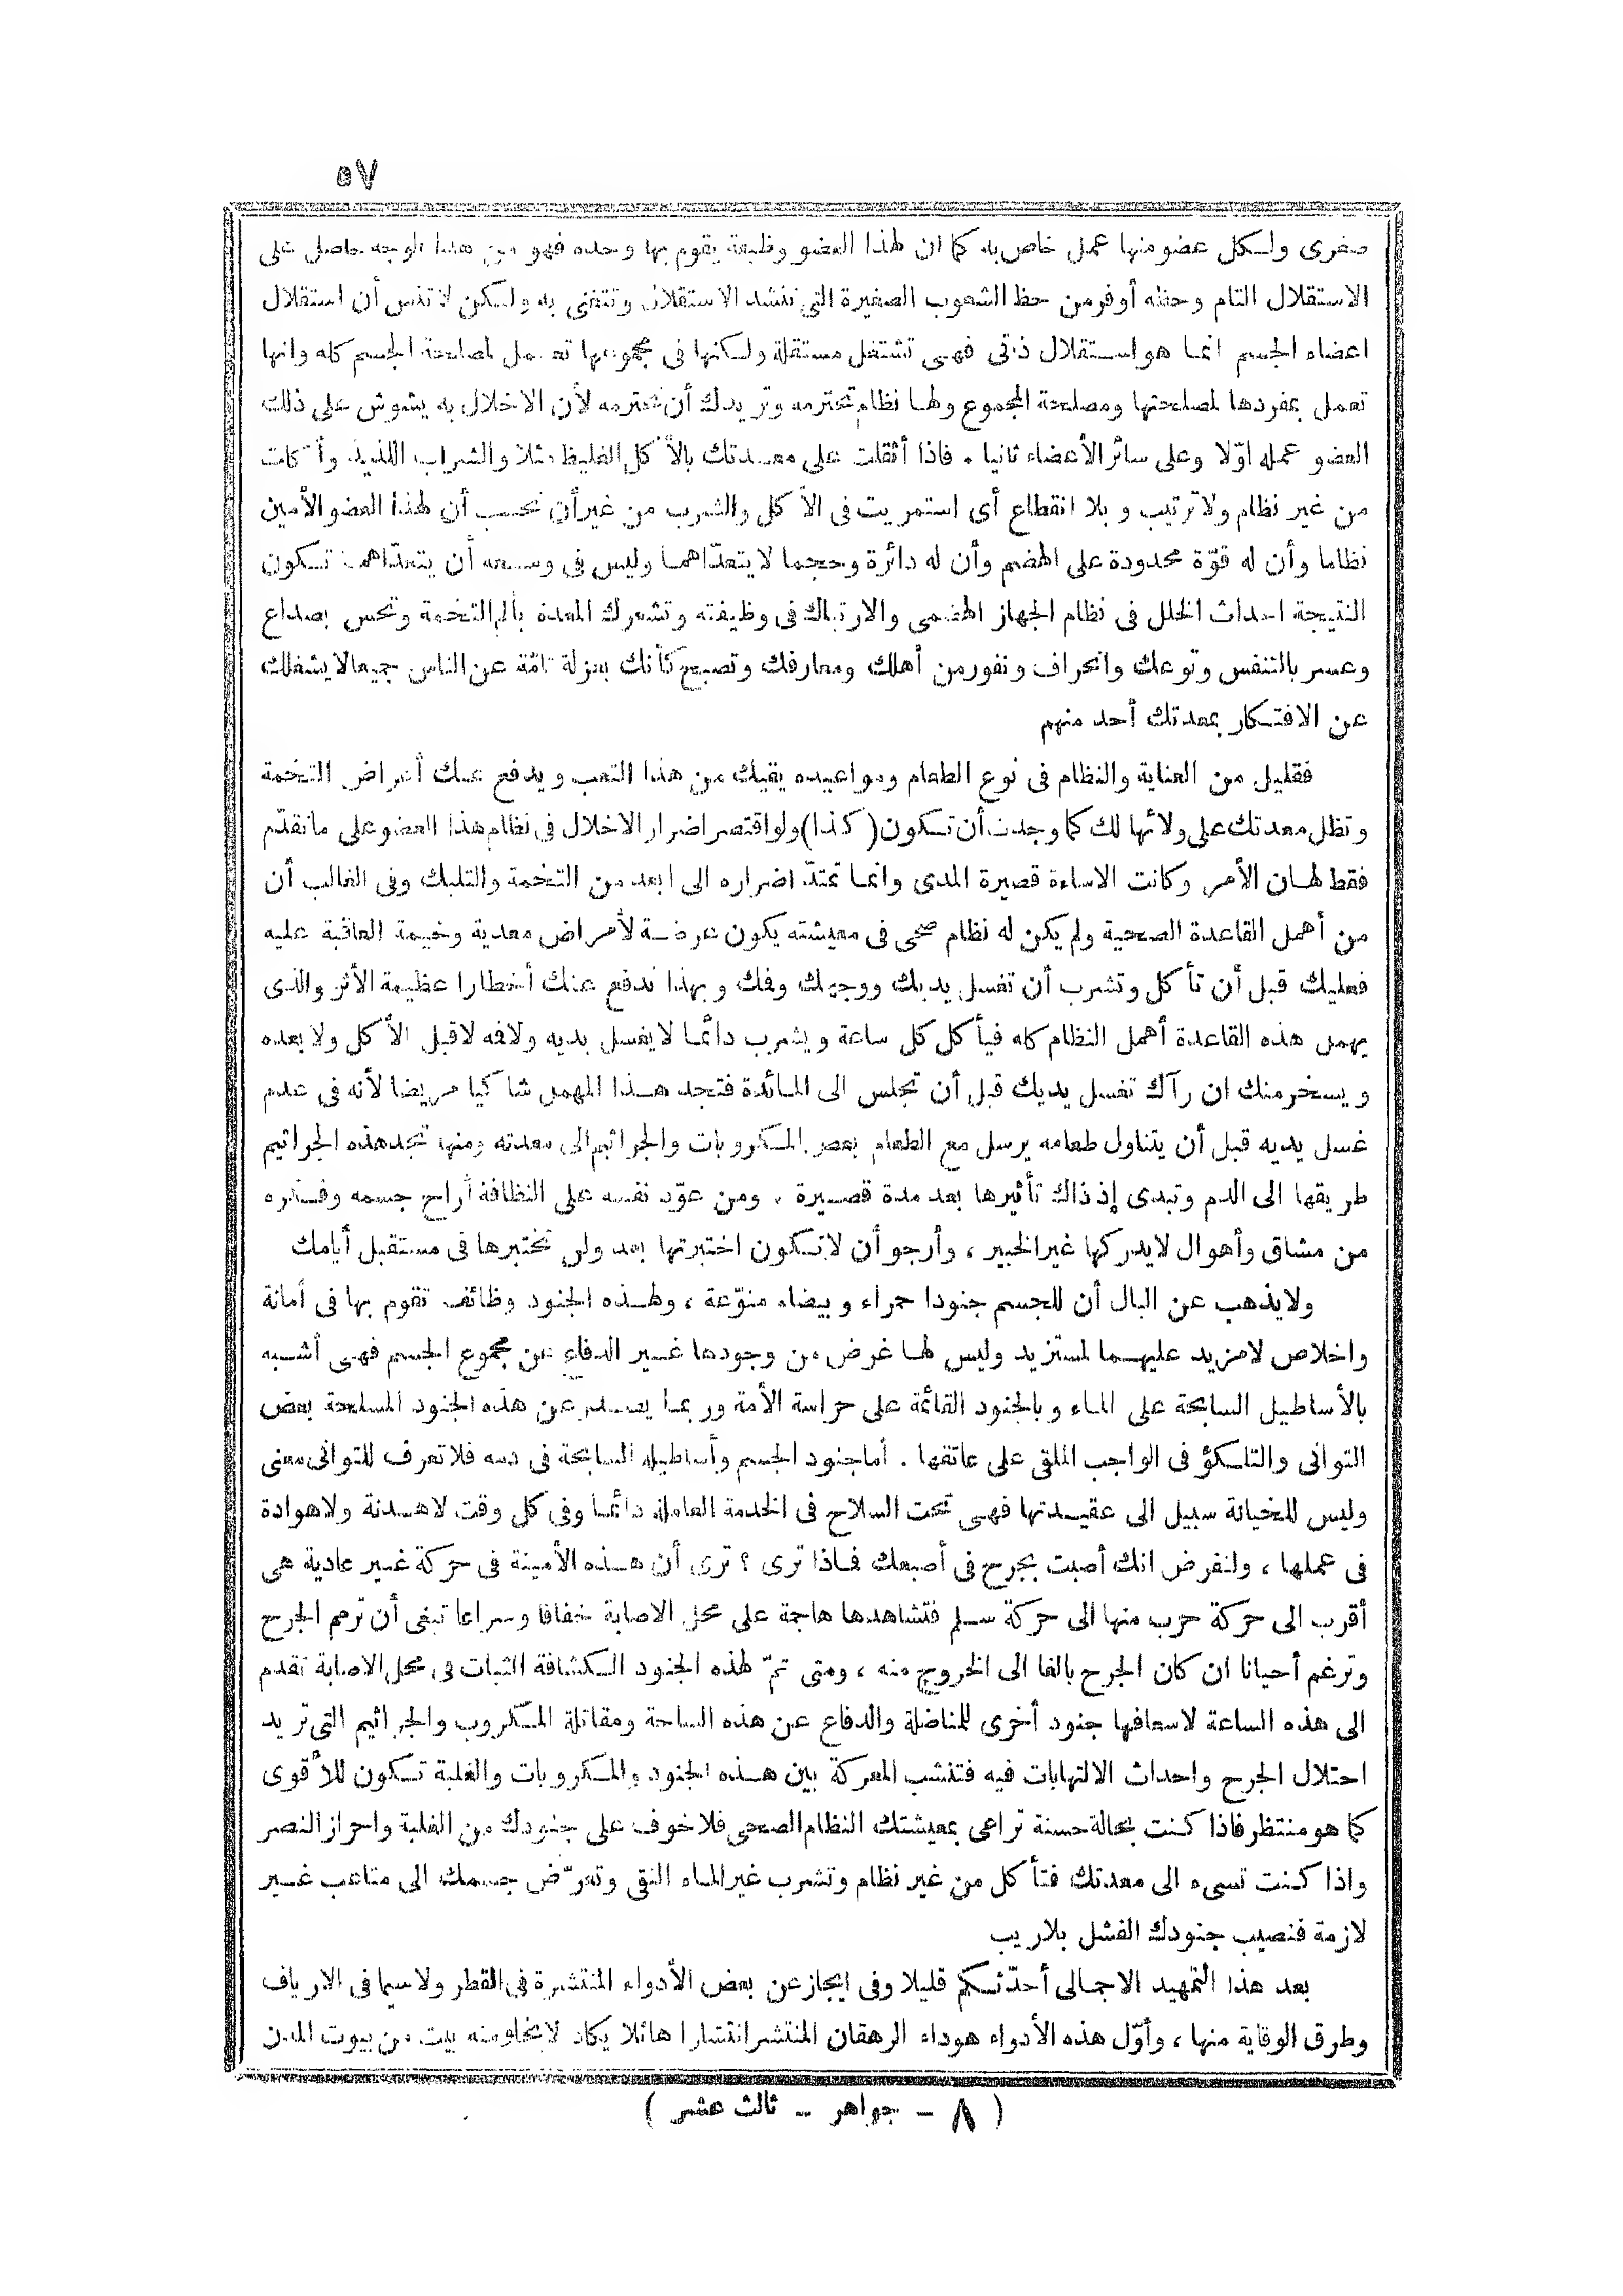 ٥٧
صغرى ولكل عضو منها عمل خاص به كما ان لهذا العضو وظيفة يقوم بها وحده فهو من هذا الوجه حاصل على
الاستقلال التام وحظه أوفر من حظ الشعوب الصغيرة التى تنشد الاستقلال وتتغنى به ولكن لا تنس أن استقلال
اعضاء الجسم انما هو استقلال ذاتى فهى تشتغل مستقلة ولكنها فى مجموعها تعمل لمصلحة الجسم كله وانها
تعمل بمفردها لمصلحتها ومصلحة المجموع ولها نظام تحترمه وتريدك أن تحترمه لأن الاخلال به يشوش على ذلك
العضو عمله اوّلا وعلى سائر الأعضاء ثانيا . فاذا أثقلت على معدتك بالأكل الغليظ مثلا والشراب اللذيذ وأكلت
من غير نظام ولا ترتيب وبلا انقطاع أى استمريت فى الأكل والشرب من غير أن تحسب أن لهذا العضو الأمين
نظاما وأن له قوّة محدودة على الهضم وأن له دائرة وحجما لا يتعدّاهما وليس فى وسعه أن يتعدّاهما تكون
النتيجة احداث الخلل فى نظام الجهاز الهضمى والارتباك فى وظيفته وتشعرك المعدة بألم التخمة وتحس بصداع
وعسر بالتنفس وتوعك وانحراف ونفور من أهلك ومعارفك وتصبح كأنك بعزلة تامّة عن الناس جميعا لا يشغلك
عن الافتكار بمعدتك أحد منهم
فقليل من العناية والنظام فى نوع الطعام ومواعيده يقيك من هذا التعب ويدفع عنك أعراض التخمة
وتظل معدتك على ولائها لك كما وجدت أن تكون (كذا) ولو اقتصر اضرار الاخلال فى نظام هذا العضو على ما تقدّم
فقط لهان الأمر وكانت الاساءة قصيرة المدى وانما تمتدّ اضراره الى ابعد من التخمة والتلبك وفى الغالب أن
من أهمل القاعدة الصحية ولم يكن له نظام صحى فى معيشته يكون عرضة لأمراض معدية وخيمة العاقبة عليه
فعليك قبل أن تأكل وتشرب أن تغسل يديك ووجهك وفمك وبهذا تدفع عنك أخطارا عظيمة الأثر والذى
يهمل هذه القاعدة أهمل النظام كله فيأكل كل ساعة ويشرب دائما لا يغسل يديه ولا فمه لا قبل الأكل ولا بعده
ويسخر منك ان رآك تغسل يديك قبل أن تجلس الى المائدة فتجد هذا المهمل شاكيا مريضا لأنه فى عدم
غسل يديه قبل أن يتناول طعامه يرسل مع الطعام بعض المكروبات والجراثيم الى معدته ومنها تجد هذه الجراثيم
طريقها الى الدم وتبدى إذ ذاك تأثيرها بعد مدة قصيرة . ومن عوّد نفسه على النظافة أراح جسمه وفكره
من مشاق وأهوال لا يدركها غير الخبير ، وأرجو أن لا تكون اختبرتها بعد ولن تختبرها فى مستقبل أيامك
ولا يذهب عن البال أن للجسم جنودا حمراء وبيضاء منوّعة ، ولهذه الجنود وظائف تقوم بها فى أمانة
واخلاص لا مزيد عليهما لمستزيد وليس لها غرض من وجودها غير الدفاع عن مجموع الجسم فهى أشبه
بالأساطيل السابحة على الماء وبالجنود القائمة على حراسة الأمة وربما يصدر عن هذه الجنود المسلحة بعض
التوانى والتلكؤ فى الواجب الملقى على عاتقها . أما جنود الجسم وأساطيله السابحة فى دمه فلا تعرف للتوانى معنى
وليس للخيانة سبيل الى عقيدتها فهى تحت السلاح فى الخدمة العاملة دائما وفى كل وقت لا هدنة ولا هوادة
فى عملها ، ولنفرض انك أصبت بجرح فى أصبعك فماذا ترى ؟ ترى أن هذه الأمينة فى حركة غير عادية هى
أقرب الى حركة حرب منها الى حركة سلم فتشاهدها هاجمة على محل الاصابة خفافا وسراعا تبغى أن ترمم الجرح
وترغم أحيانا ان كان الجرح بالغا الى الخروج منه ، ومتى تمّ لهذه الجنود الكشافة الثبات فى محل الاصابة تقدم
الى هذه الساعة لاسعافها جنود أخرى للمناضلة والدفاع عن هذه الساحة ومقاتلة المكروب والجراثيم التى تريد
احتلال الجرح واحداث الالتهابات فيه فتنشب المعركة بين هذه الجنود والمكروبات والغلبة تكون للأقوى
كما هو منتظر فاذا كنت بحالة حسنة تراعى بمعيشتك النظام الصحى فلا خوف على جنودك من الغلبة واحراز النصر
واذا كنت تسىء الى معدتك فتأكل من غير نظام وتشرب غير الماء النقى وتعرّض جسمك الى متاعب غير
لازمة فنصيب جنودك الفشل بلا ريب
بعد هذا التمهيد الاجمالى أحدّثكم قليلا وفى ايجاز عن بعض الأدواء المنتشرة فى القطر ولا سيما فى الارياف
وطرق الوقاية منها ، وأوّل هذه الأدواء هو داء الرهقان المنتشر انتشارا هائلا يكاد لا يخلو منه بيت من بيوت المدن
( ٨ - جواهر - ثالث عشر )